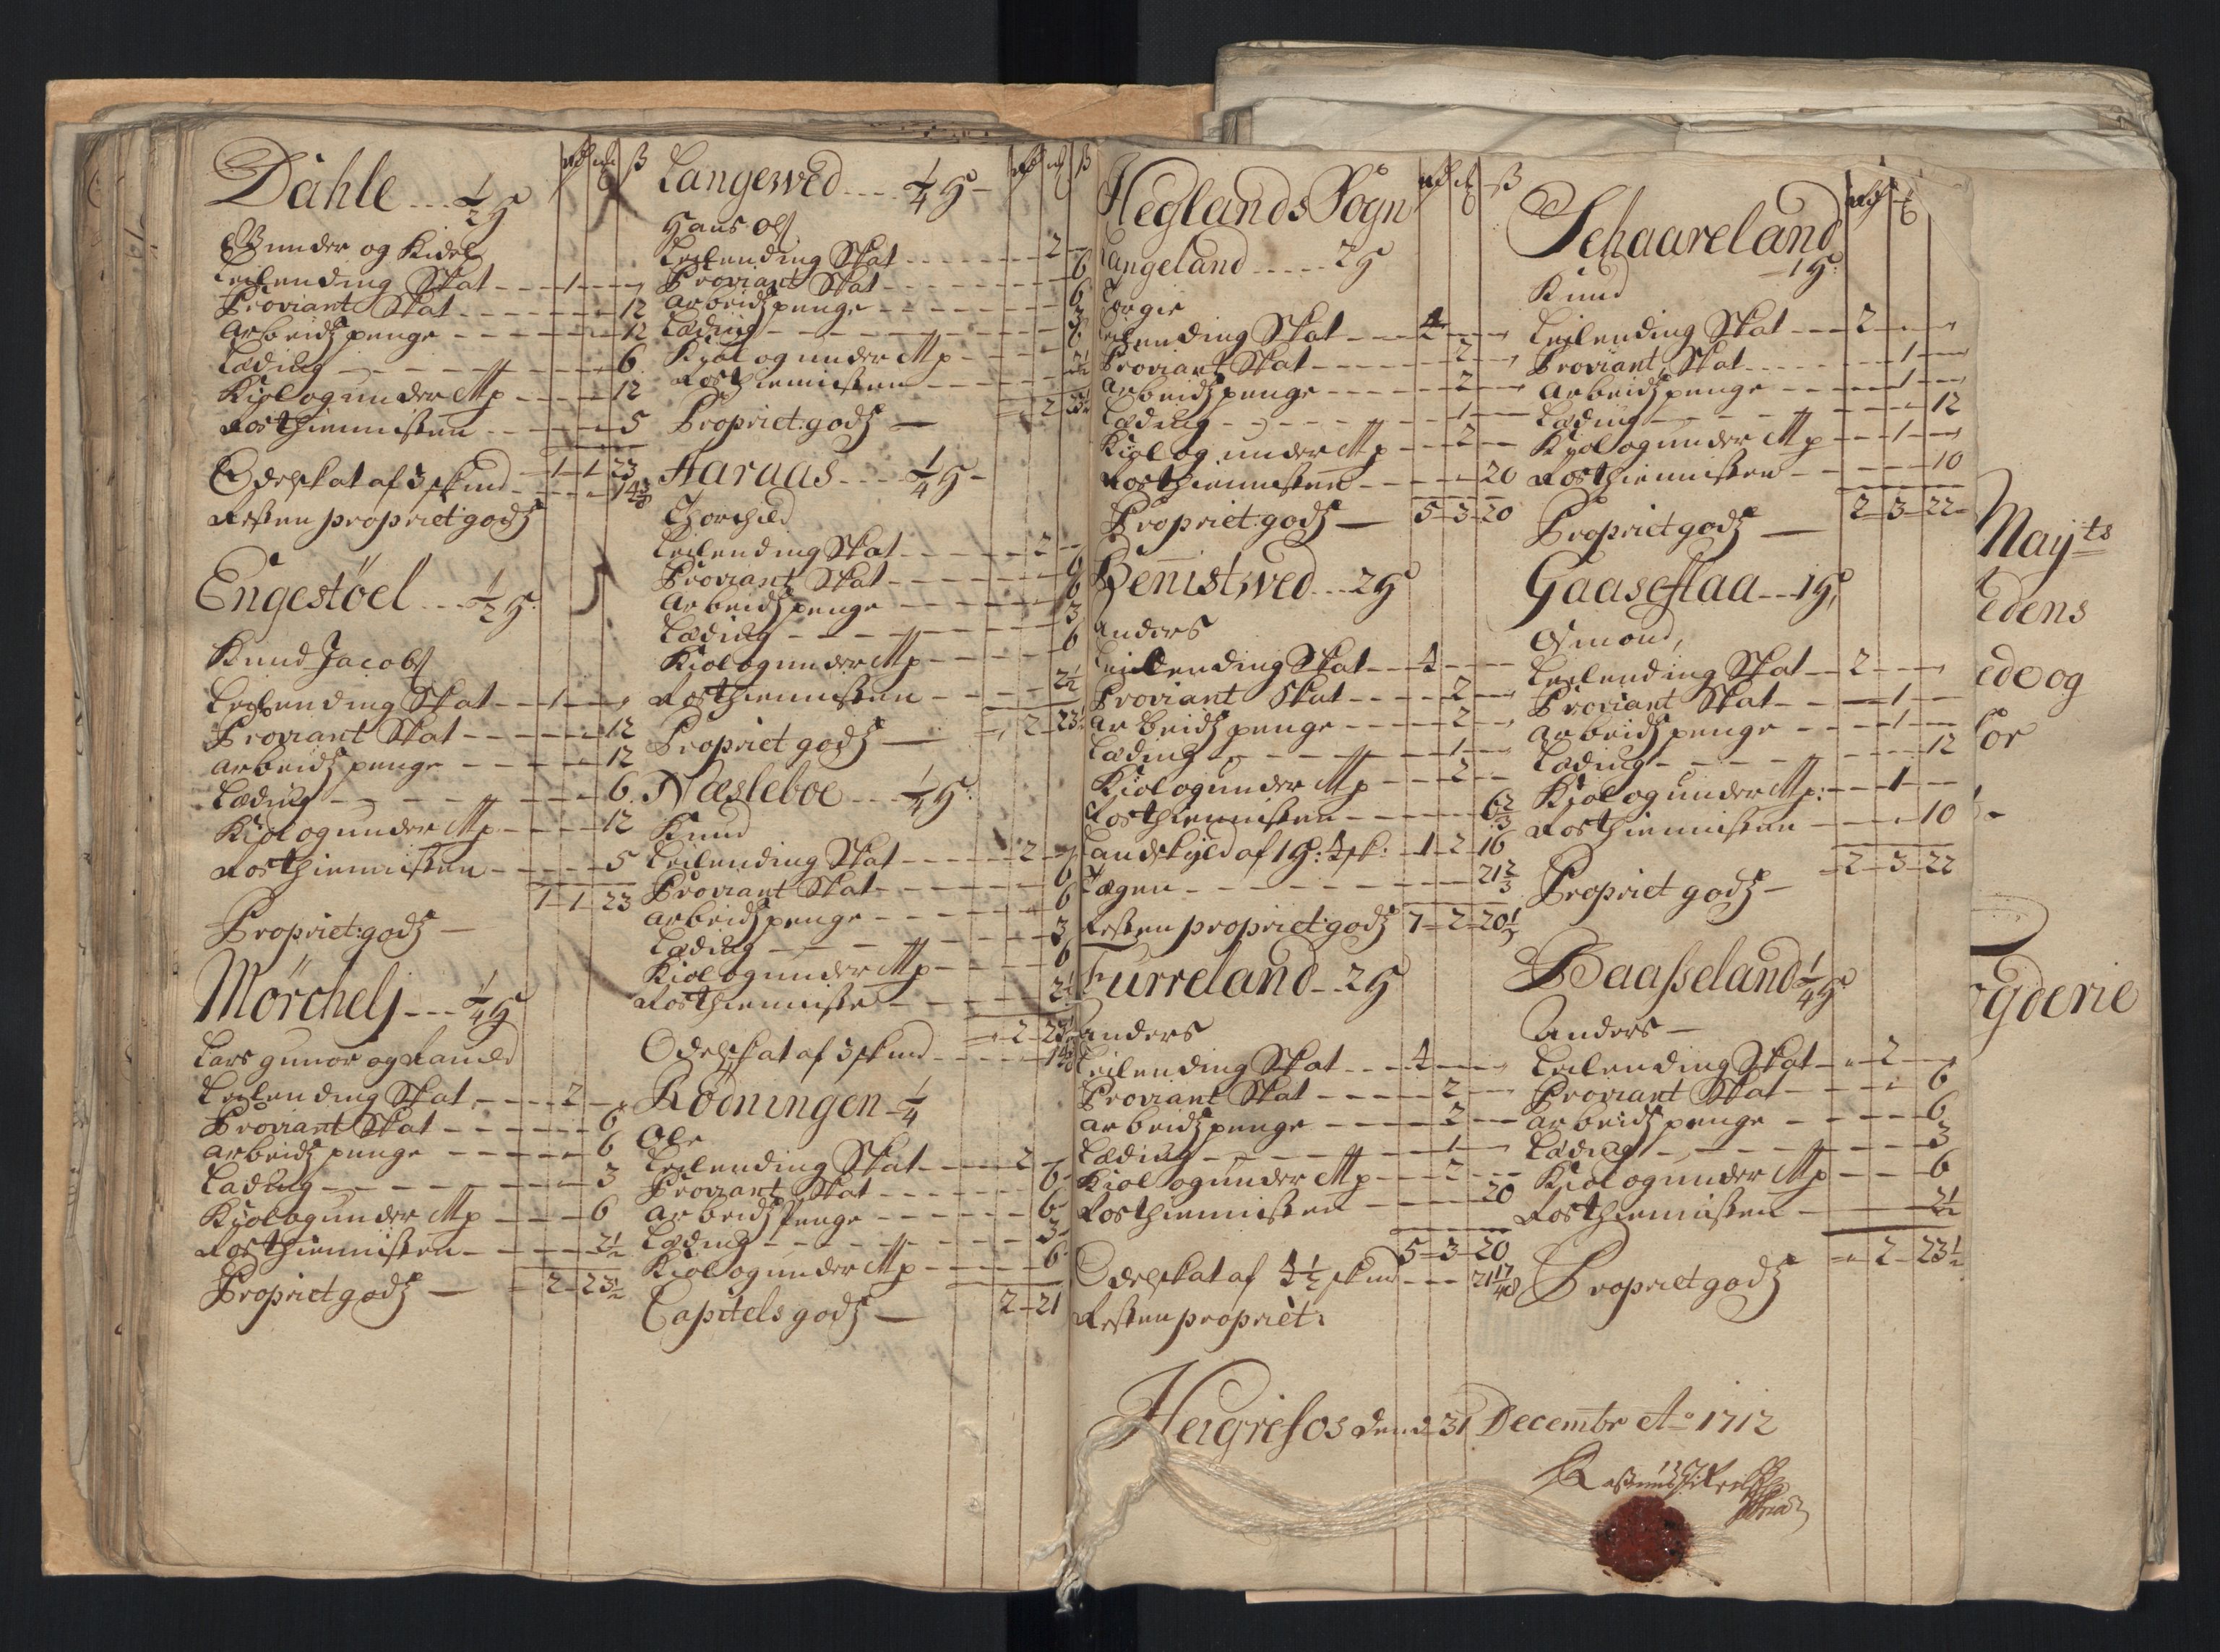 Dahle --- 1/2 H rd mk ß
Gunder og Kidel
Leilending Skat --- 1 ---
Proviant Skat --- 12
Arbeidspenge --- 12
Læding --- 6
Kiøl og under Mp --- 12
Rosthienisten --- 5
1 - 1 - 23
Odelskat af 3 skind --- 14 3/8
Resten propriet: gods
Engestöel --- 1/2 H:
Knud Jacobs
Leilending Skat --- 1 ---
Proviant Skat --- 12
Arbeids penge --- 12
Læding --- 6
Kiøl og under Mp --- 12
Rosthienisten --- 5
1 - 1 - 23
Propriet: gods —
Mörchelj --- 1/4 H
Lars gunor og
Leilending Skat --- 2 ---
Proviant Skat --- 6
Arbeids penge --- 6
Læding --- 3
Kiøl og under Mp --- 6
Rosthienisten --- 2 1/2
Propriet gods — 2 - 23 1/2
Langewed --- 1/4 H - rd mk ß
Hans Ols
Leilending Skat --- 2 -
Proviant Skat --- 6
Arbeids penge --- 6
Læding --- 3
Kiøl og under Mp --- 6
Rosthienisten --- 2 1/2
2 23 1/2
Propriet: gods —
Haraas --- 1/4 H -
Thorchild
Leilending Skat --- 2 -
Proviant Skat --- 6
Arbeids penge --- 6
Læding --- 3
Kiøl og under Mp --- 6
Rosthienisten --- 2 1/2
Propriet gods — 2 - 23 1/2
Næsleboe --- 1/4 H:
Knud
Leilending Skat --- 2 -
Proviant Skat --- 6
Arbeids penge --- 6
Læding --- 3
Kiøl og under Mp --- 6
Rosthieniste --- 2 1/2
2 - 23 1/2
Odelskat af 3 skind ---
Rödningen - 1/4
Ole
Leilending Skat --- 2 -
Proviant Skat --- 6
Arbeids Penge --- 6
Læding --- 3
Kiøl og under Mp --- 6
Capitels gods — 2 - 21
Heglands Sogn rd mk ß
Langeland --- 2 H
Torgie
Leilending Skat --- 4 ---
Proviant Skat --- 2 ---
Arbeids penge --- 2 ---
Læding --- 1 ---
Kiøl og under Mp --- 2 ---
Rosthienisten --- 20
Propriet: gods — 5 - 3 - 20
Henistwed --- 2 H
Anders
Leilending Skat --- 4 ---
Proviant Skat --- 2 ---
Arbeids penge --- 2 ---
Læding --- 1 ---
Kiøl og under Mp --- 2 ---
Rosthienisten --- 6 2/3
Landskyld af 1 H: 4 sk: - 1 - 2 - 16
Tægen --- 21 2/3
Resten propriet: gods 7 - 2 - 20 1/3
Furreland -- 2 H
Anders
Leilending Skat --- 4 ---
Proviant Skat --- 2 ---
Arbeids penge --- 2 ---
Læding --- 1 ---
Kiøl og under Mp --- 2 ---
Rosthienisten --- 20
5 - 3 - 20
Odelskat af 4 1/2 skind --- 21 17/48
Resten propriet:
Schaareland rd mk
1 H:
Knud
Leilending Skat --- 2 ---
Proviant Skat --- 1 ---
Arbeids penge --- 1 ---
Læding --- 12
Kiøl og under Mp --- 1 ---
Rosthienisten --- 10
2 - 3 - 22
Propriet gods —
Gaaseflaa --- 1 H,
Osmond,
Leilending Skat --- 2 ---
Proviant Skat --- 1 ---
Arbeids penge --- 1 ---
Læding --- 12
Kiøl og under Mp: --- 1 ---
Rosthienisten --- 10
2 - 3 - 22
Propriet gods —
Baasseland 1/4 H
Anders —
Leilending Skat --- 2 ---
Proviant Skat --- 6
Arbeids penge --- 6
Læding --- 3
Kiøl og under Mp --- 6
Rosthienisten --- 2 1/2
2 - 23 1/2
Propriet gods
Heigrefos den 31 Decembr Ao 1712
Mayts
edens
ede og
for
gderie